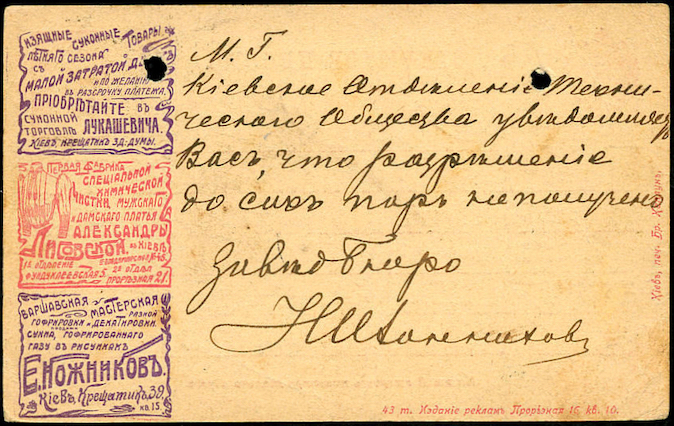 Изящные суконные товары
лѣтняго сезона
съ
малой затратой
и по желанію
въ разсрочку платежа,
пріобрѣтайте въ
суконной
торговлѣ Лукашевича.
Кіевъ, Крещатикъ зд. Думы.
Первая фабрика
спеціальной
химической
чистки мужскаго
и дамскаго платья
Александры
Лисовской, въ Кіевѣ
1е отдѣленіе
Фундуклеевская 5.
2е отдѣл.
Прорѣзная 21.
Варшавская мастерская
разной
гофрировки и декатировки
сукна, гофрированнаго
газу въ рисункахъ
Е. Ножниковъ.
Кіевъ, Крещатикъ, 39,
кв. 15
М. Г.
Кіевское Отдѣленіе Техни-
ческаго Общества увѣдомляетъ
Васъ, что разрѣшеніе
до сихъ поръ не получено
Завѣд Бюро
Кіевъ, печ. Бр.
43 т. Изданіе реклам. Прорѣзная 16 кв. 10.